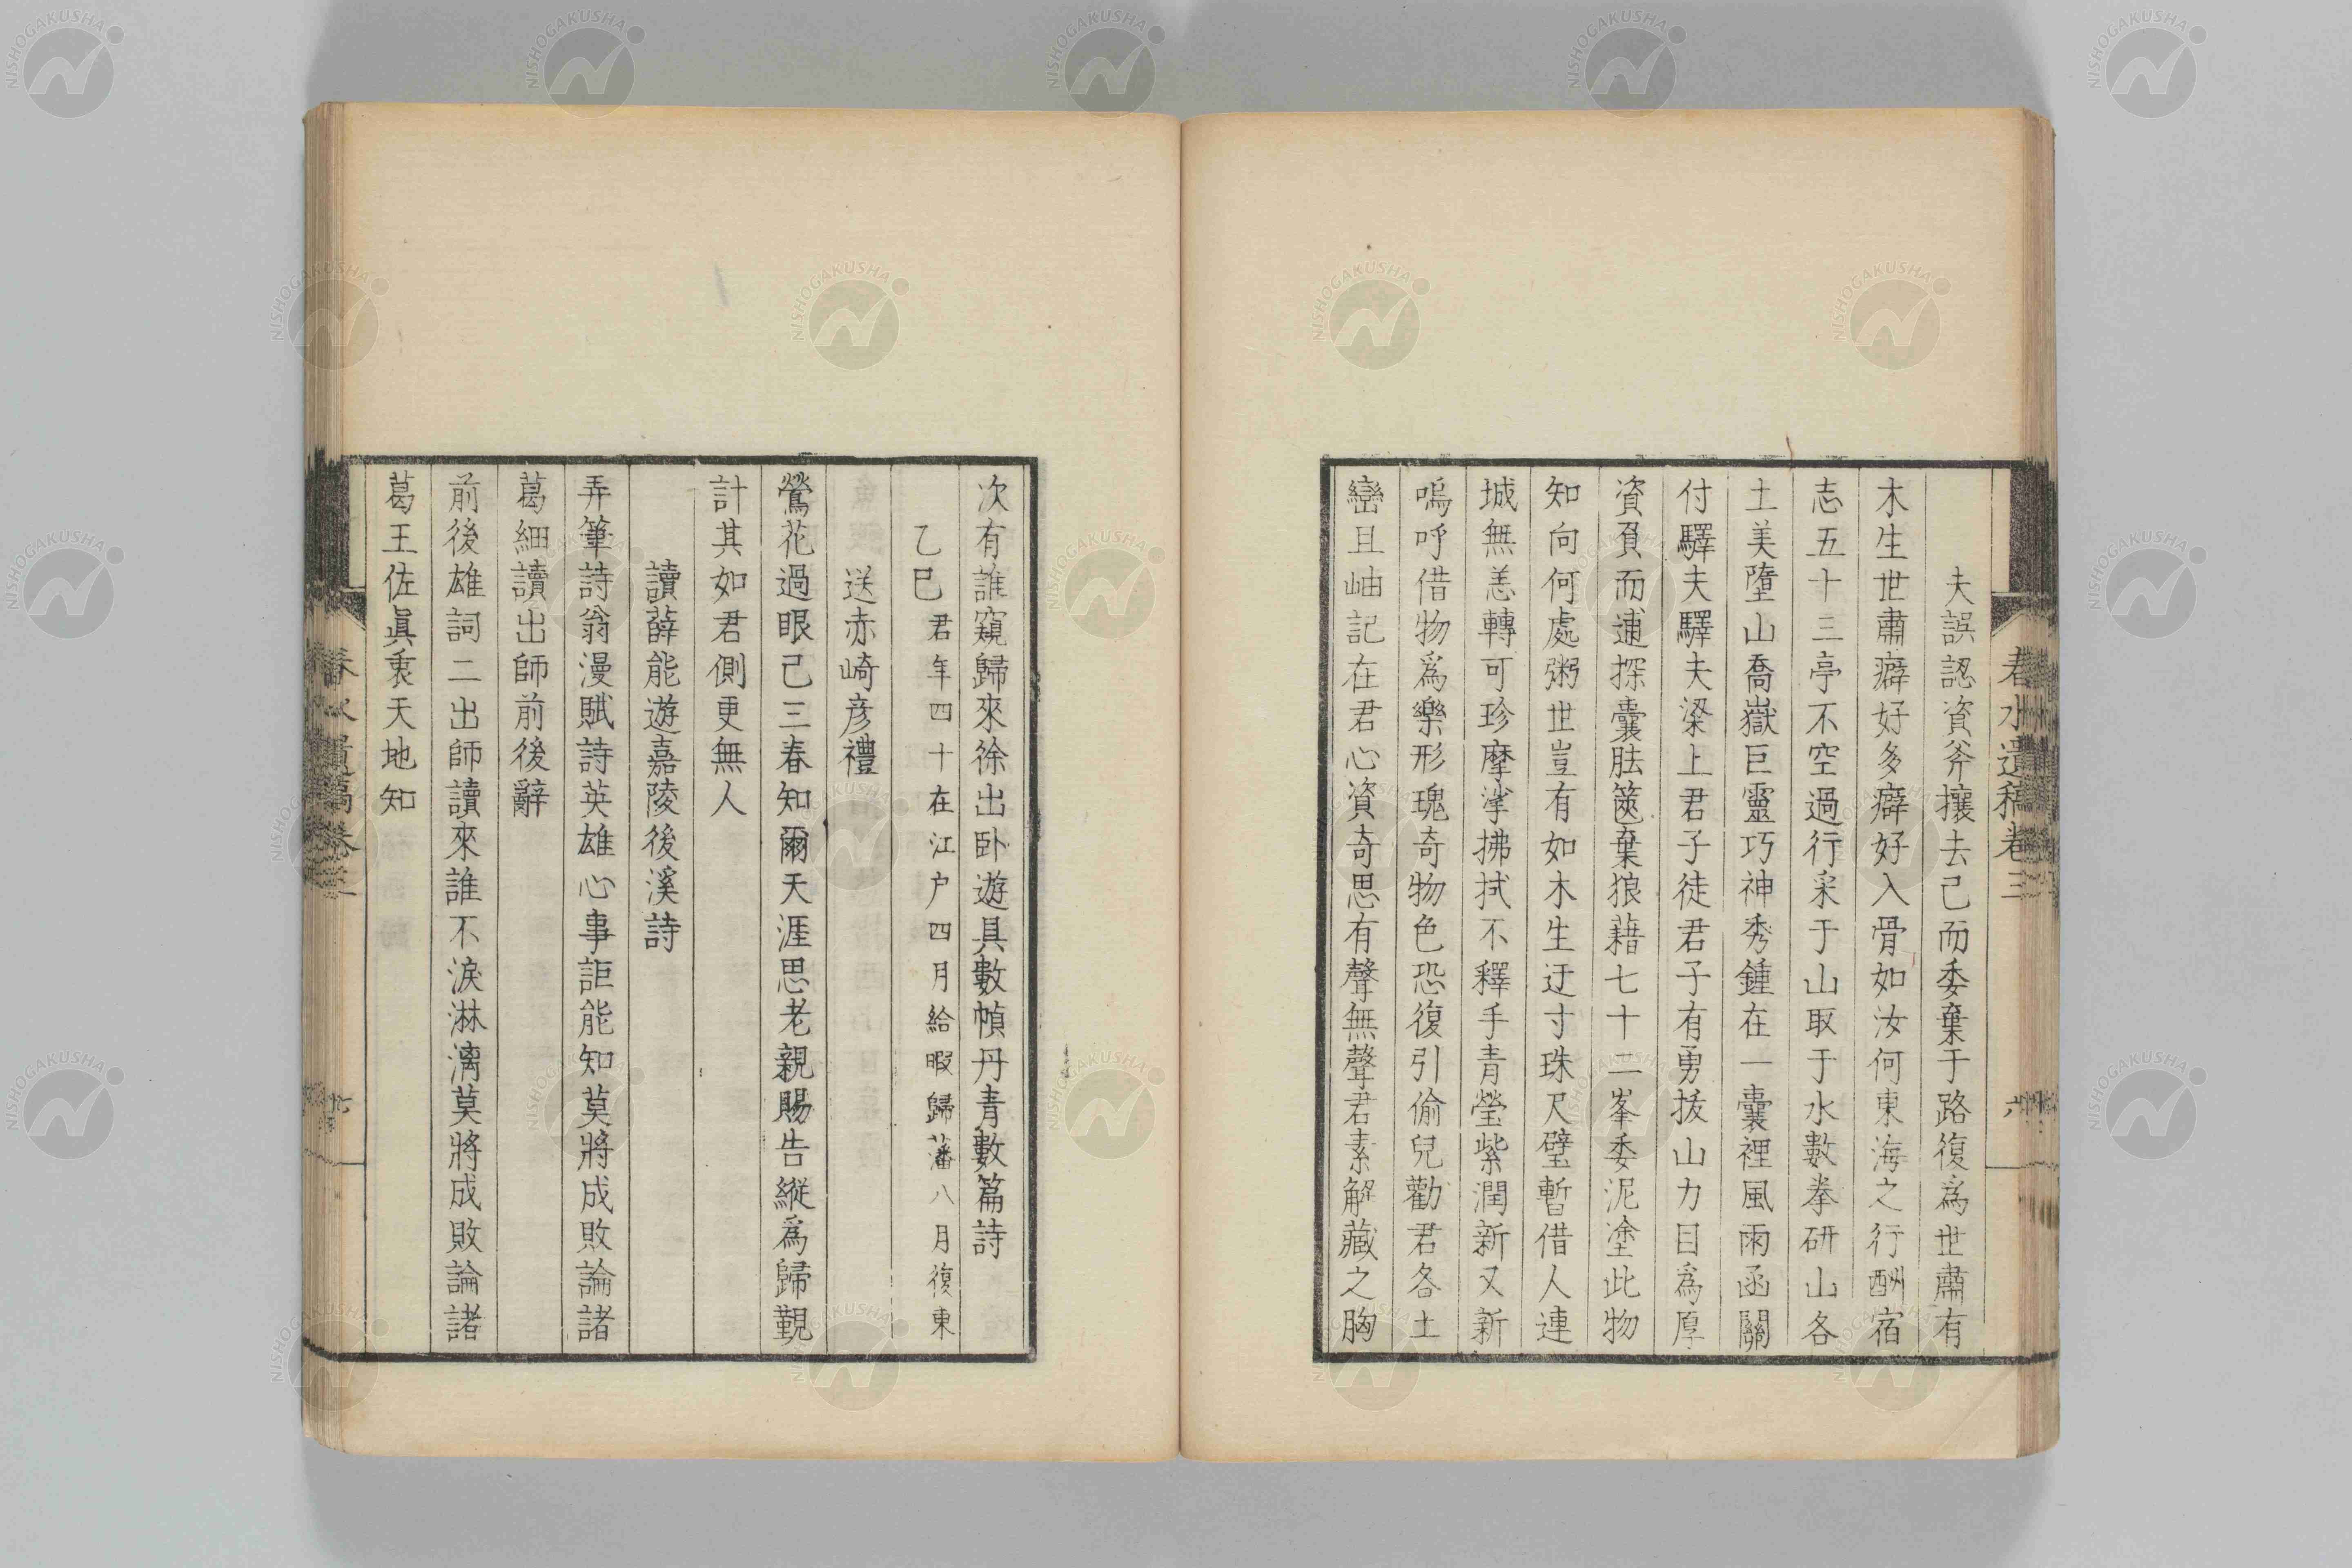 春水遺稿卷三
六
夫誤認資斧攘去已而委棄于路復爲世肅有
木生世肅癖好多癖好入骨如汝何東海之行酬宿
志五十三亭不空過行采于山取于水數拳研山各
土美墮山喬嶽巨靈巧神秀鍾在一囊裡風雨函關
付驛夫驛夫梁上君子徒君子有勇拔山力目爲厚
資負而逋探囊胠篋棄狼藉七十二峯委泥塗此物
知向何處粥世豈有如木生迂寸珠尺璧暫借人連
城無恙轉可珍摩挲拂拭不釋手青瑩紫潤新又新
嗚呼借物爲樂形瑰奇物色恐復引偷兒勸君各土
巒且岫記在君心資奇思有聲無聲君素解藏之胸
次有誰窺歸來徐出卧遊具數幀丹青數篇詩
乙巳君年四十在江户四月給暇歸藩八月復東
送赤崎彦禮
鶯花過眼已三春知爾天涯思老親賜告縱爲歸觐
計其如君側更無人
讀薛能遊嘉陵後溪詩
弄筆詩翁漫賦詩英雄心事詎能知莫將成敗論諸
葛細讀出師前後辭
前後雄詞二出師讀來誰不淚淋漓莫將成敗論諸
葛王佐眞衷天地知
春水遺稿卷三
六
NISHOGAKUSHA